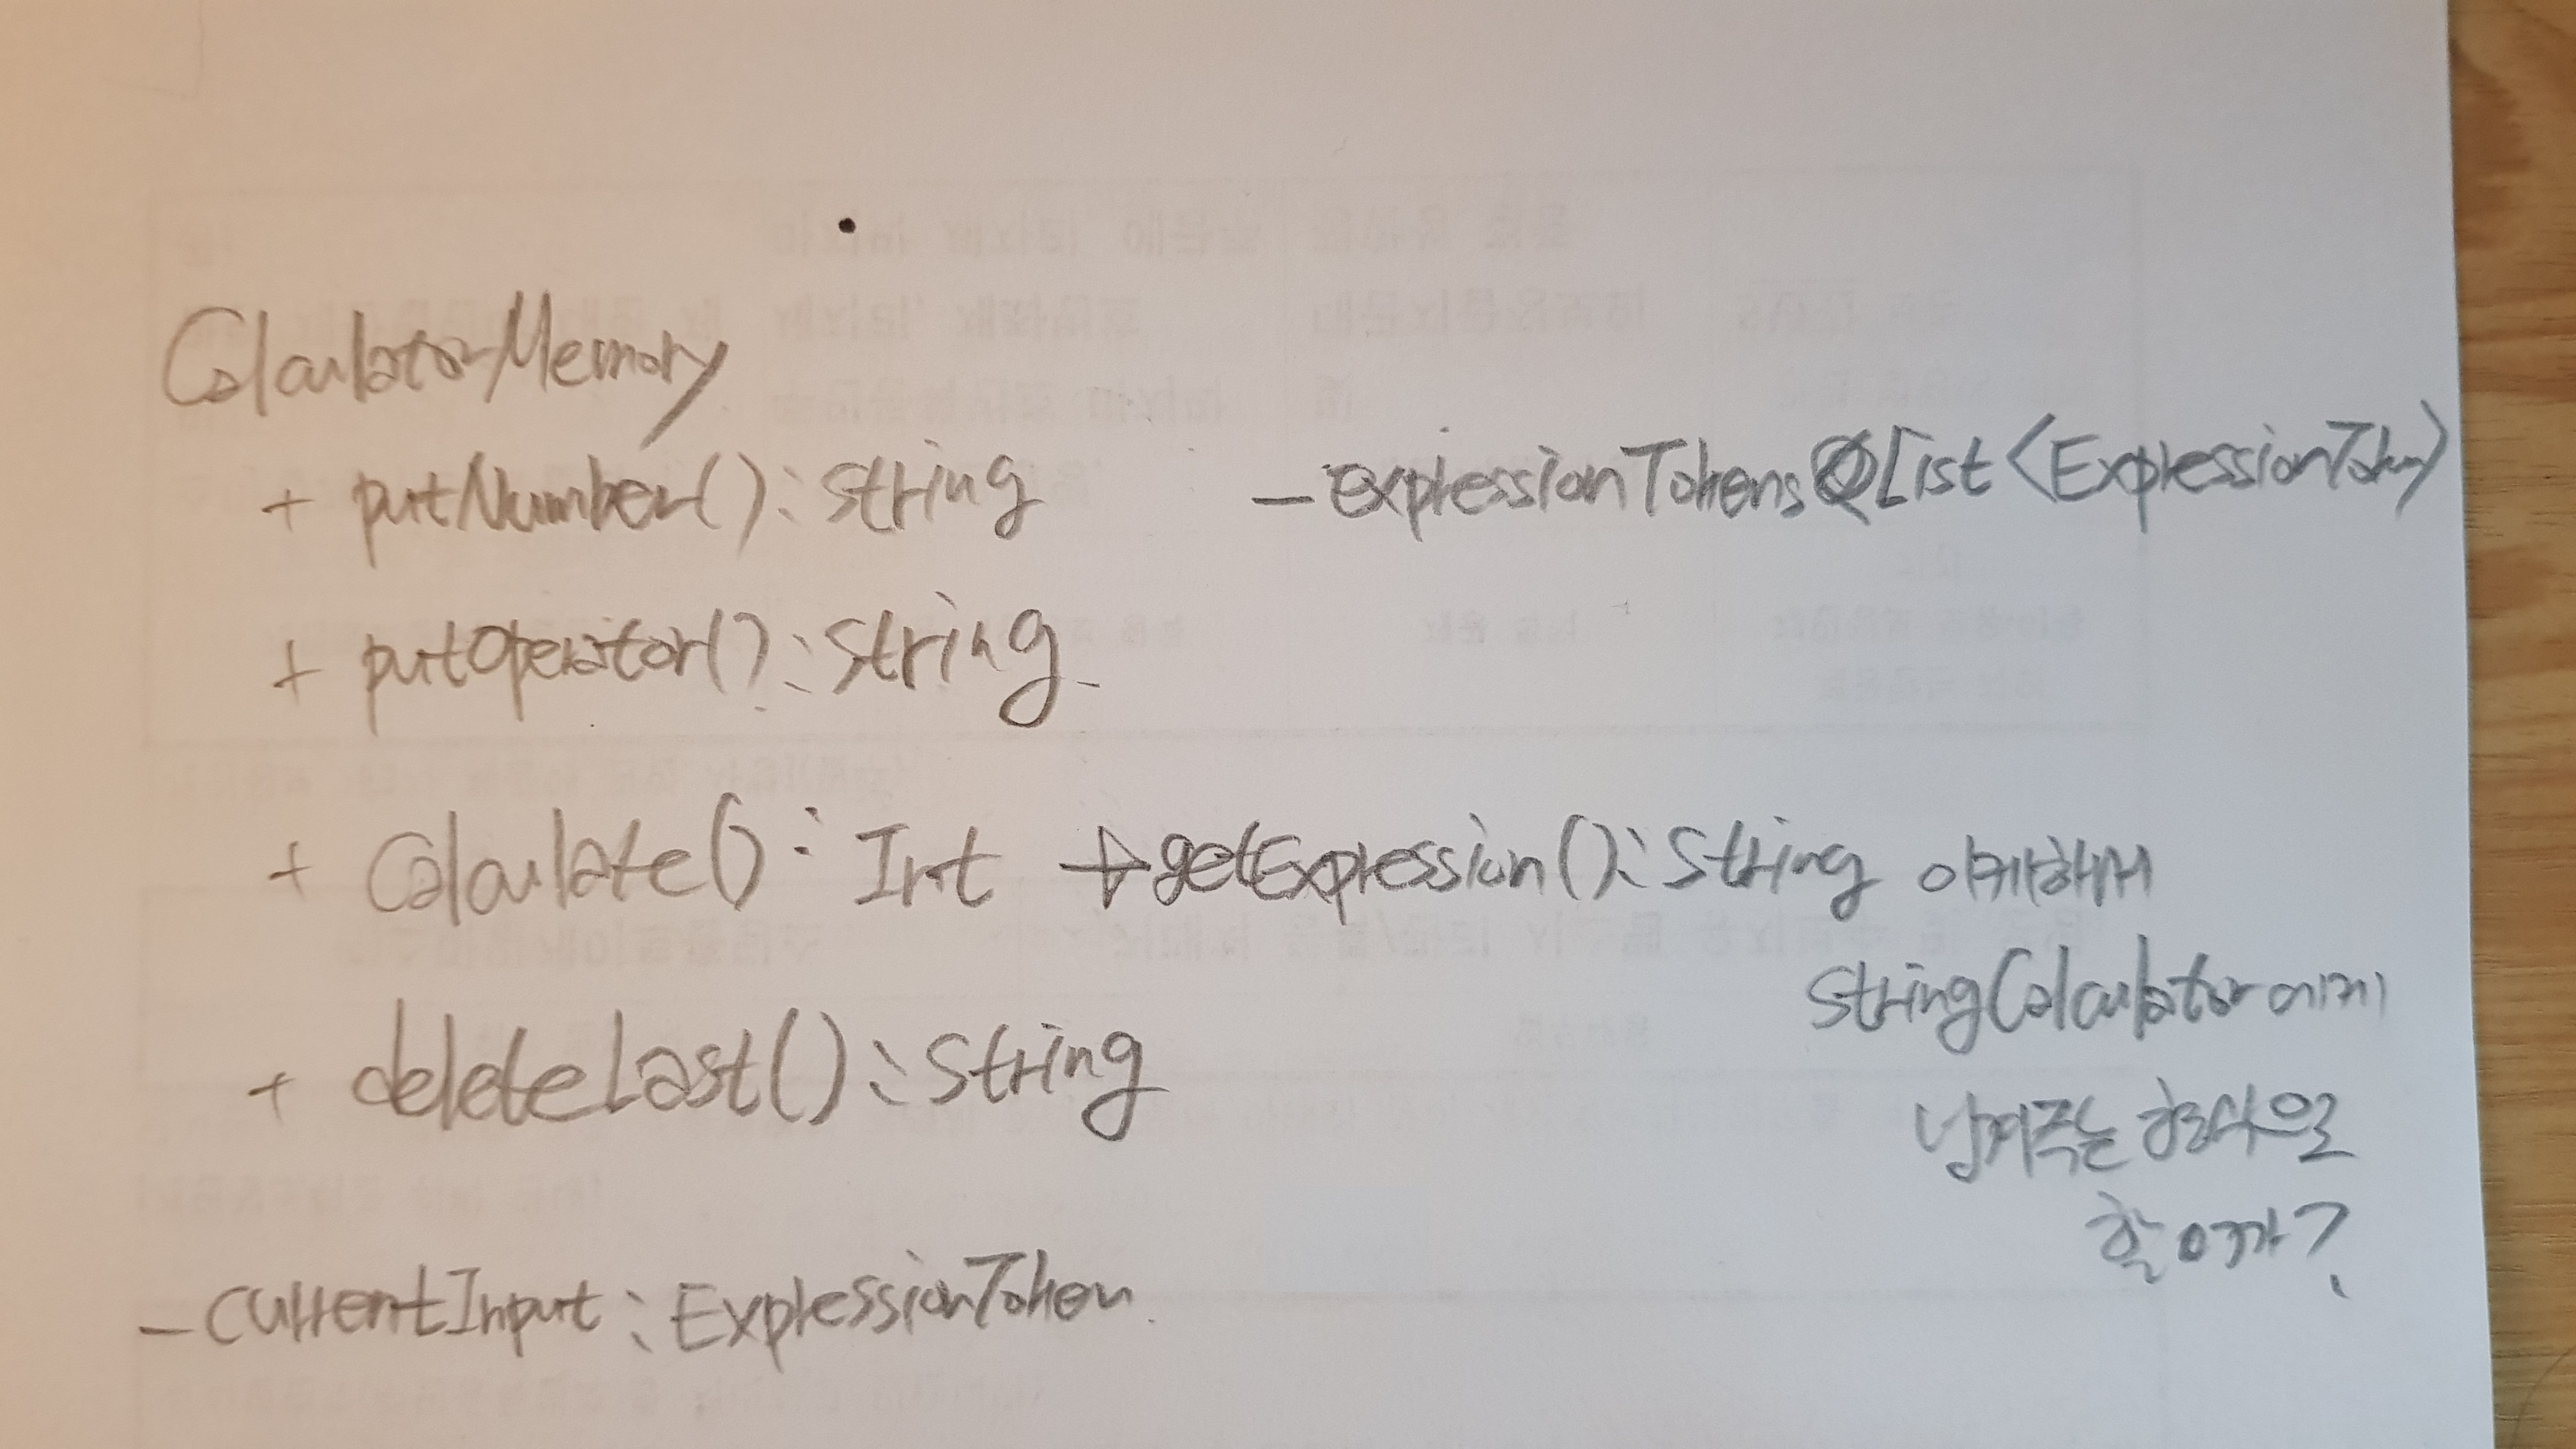 CalculatorMemory
+ putNumber(): String
- expressionTokens List<ExpressionToken>
+ putOperator(): String
+ Calculate(): Int → getExpression(): String 이케해서
StringCalculator에게
넘겨주는 형식으로
할까?
+ deleteLast(): String
- currentInput: ExpressionToken